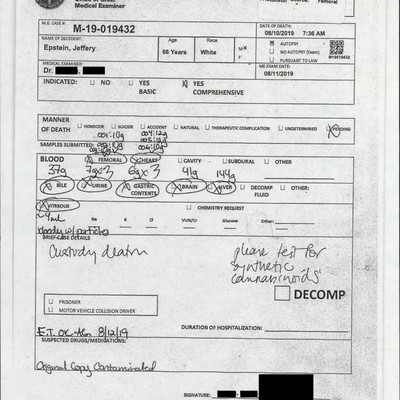 Office of Chief
Medical Examiner
Femoral
M.E. CASE #: M-19-019432
DATE OF DEATH: 08/10/2019 7:36 AM
NAME OF DECEDENT: Epstein, Jeffery
Age 66 Years
Race White
AUTOPSY
NO AUTOPSY (Exam)
PURSUANT TO LAW
MEDICAL EXAMINER: Dr.
ME EXAM DATE: 08/11/2019
INDICATED: NO YES BASIC YES COMPREHENSIVE
MANNER OF DEATH HOMICIDE SUICIDE ACCIDENT NATURAL THERAPEUTIC COMPLICATION UNDETERMINED PENDING
SAMPLES SUBMITTED:
BLOOD FEMORAL HEART CAVITY SUBDURAL OTHER
37g 7gx3 6gx3 41g 144g
BILE URINE GASTRIC CONTENTS BRAIN LIVER DECOMP FLUID OTHER:
VITREOUS
CHEMISTRY REQUEST
~4ml Na K Cl VUN/Cr Glucose Other:
bloody w/ particles
BRIEF CASE DETAILS
Custody death
please test for
synthetic
cannabinoids
DECOMP
PRISONER
MOTOR VEHICLE COLLISION DRIVER
E.T. OK 8/12/19
DURATION OF HOSPITALIZATION:
SUSPECTED DRUGS/MEDICATIONS:
Original Copy Contaminated
SIGNATURE: